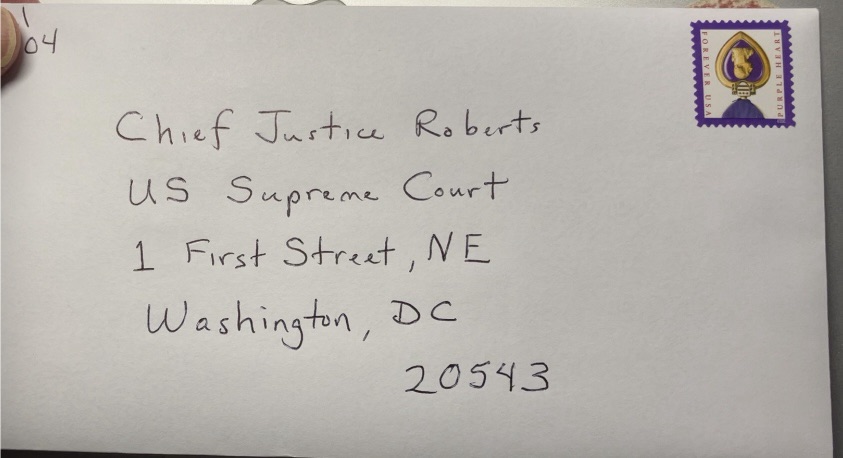 04
Chief Justice Roberts
US Supreme Court
1 First Street, NE
Washington, DC
20543
FOREVER USA
PURPLE HEART